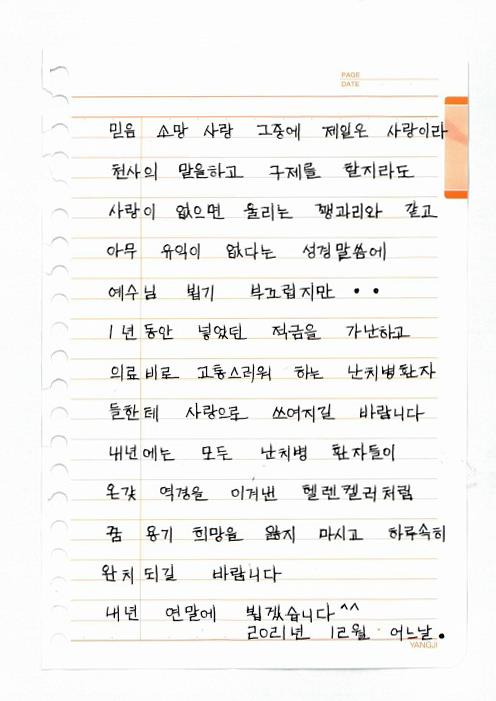 PAGE
DATE
믿음 소망 사랑 그중에 제일은 사랑이라
천사의 말을하고 구제를 할지라도
사랑이 없으면 울리는 꽹과리와 같고
아무 유익이 없다는 성경말씀에
예수님 뵙기 부끄럽지만 • •
1년동안 넣었던 적금을 가난하고
의료비로 고통스러워 하는 난치병환자
들한테 사랑으로 쓰여지길 바랍니다
내년에는 모든 난치병 환자들이
온갖 역경을 이겨낸 헬렌켈러처럼
꿈 용기 희망을 잃지 마시고 하루속히
완치되길 바랍니다
내년 연말에 뵙겠습니다^^
2021년 12월 어느날.
YANGJI